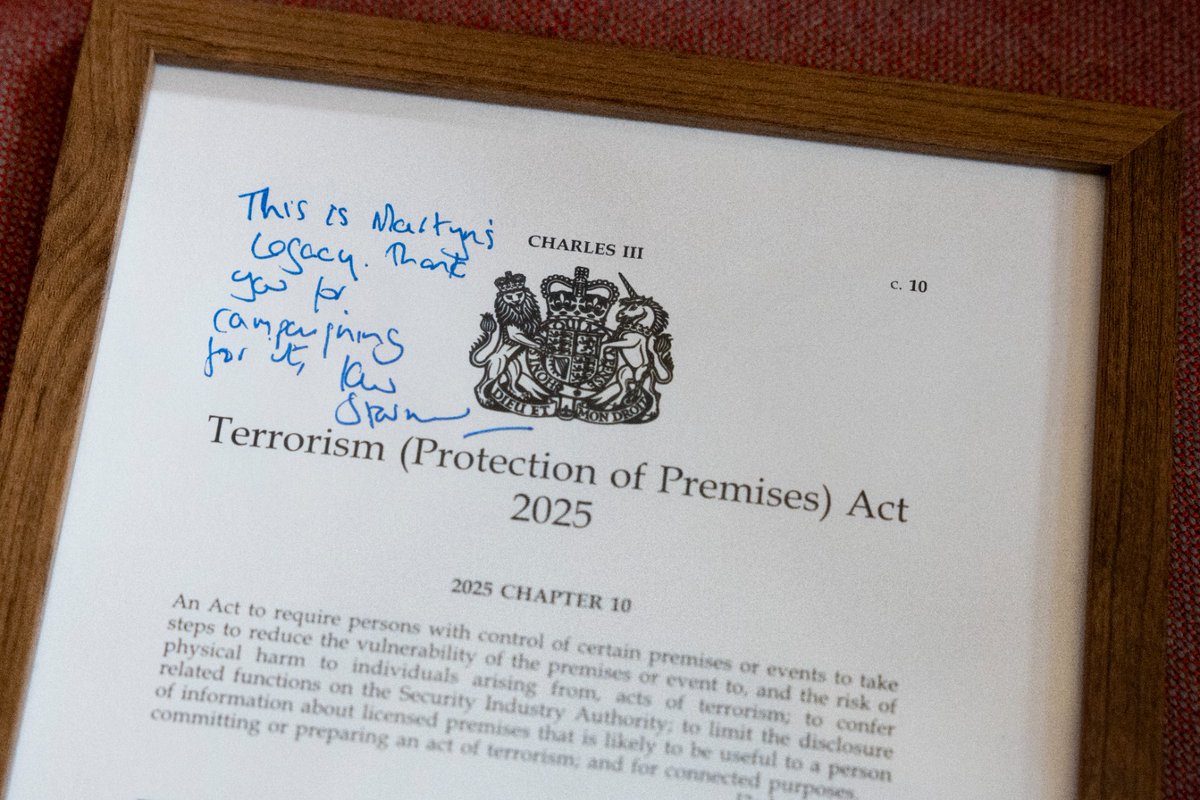 This is Martyn's
Legacy. Thank
you for
campaigning
for it,
Keir
Starmer
CHARLES III
c. 10
DIEU ET MON DROIT
Terrorism (Protection of Premises) Act
2025
2025 CHAPTER 10
An Act to require persons with control of certain premises or events to take
steps to reduce the vulnerability of the premises or event to, and the risk of
physical harm to individuals arising from, acts of terrorism; to confer
related functions on the Security Industry Authority; to limit the disclosure
of information about licensed premises that is likely to be useful to a person
committing or preparing an act of terrorism; and for connected purposes.